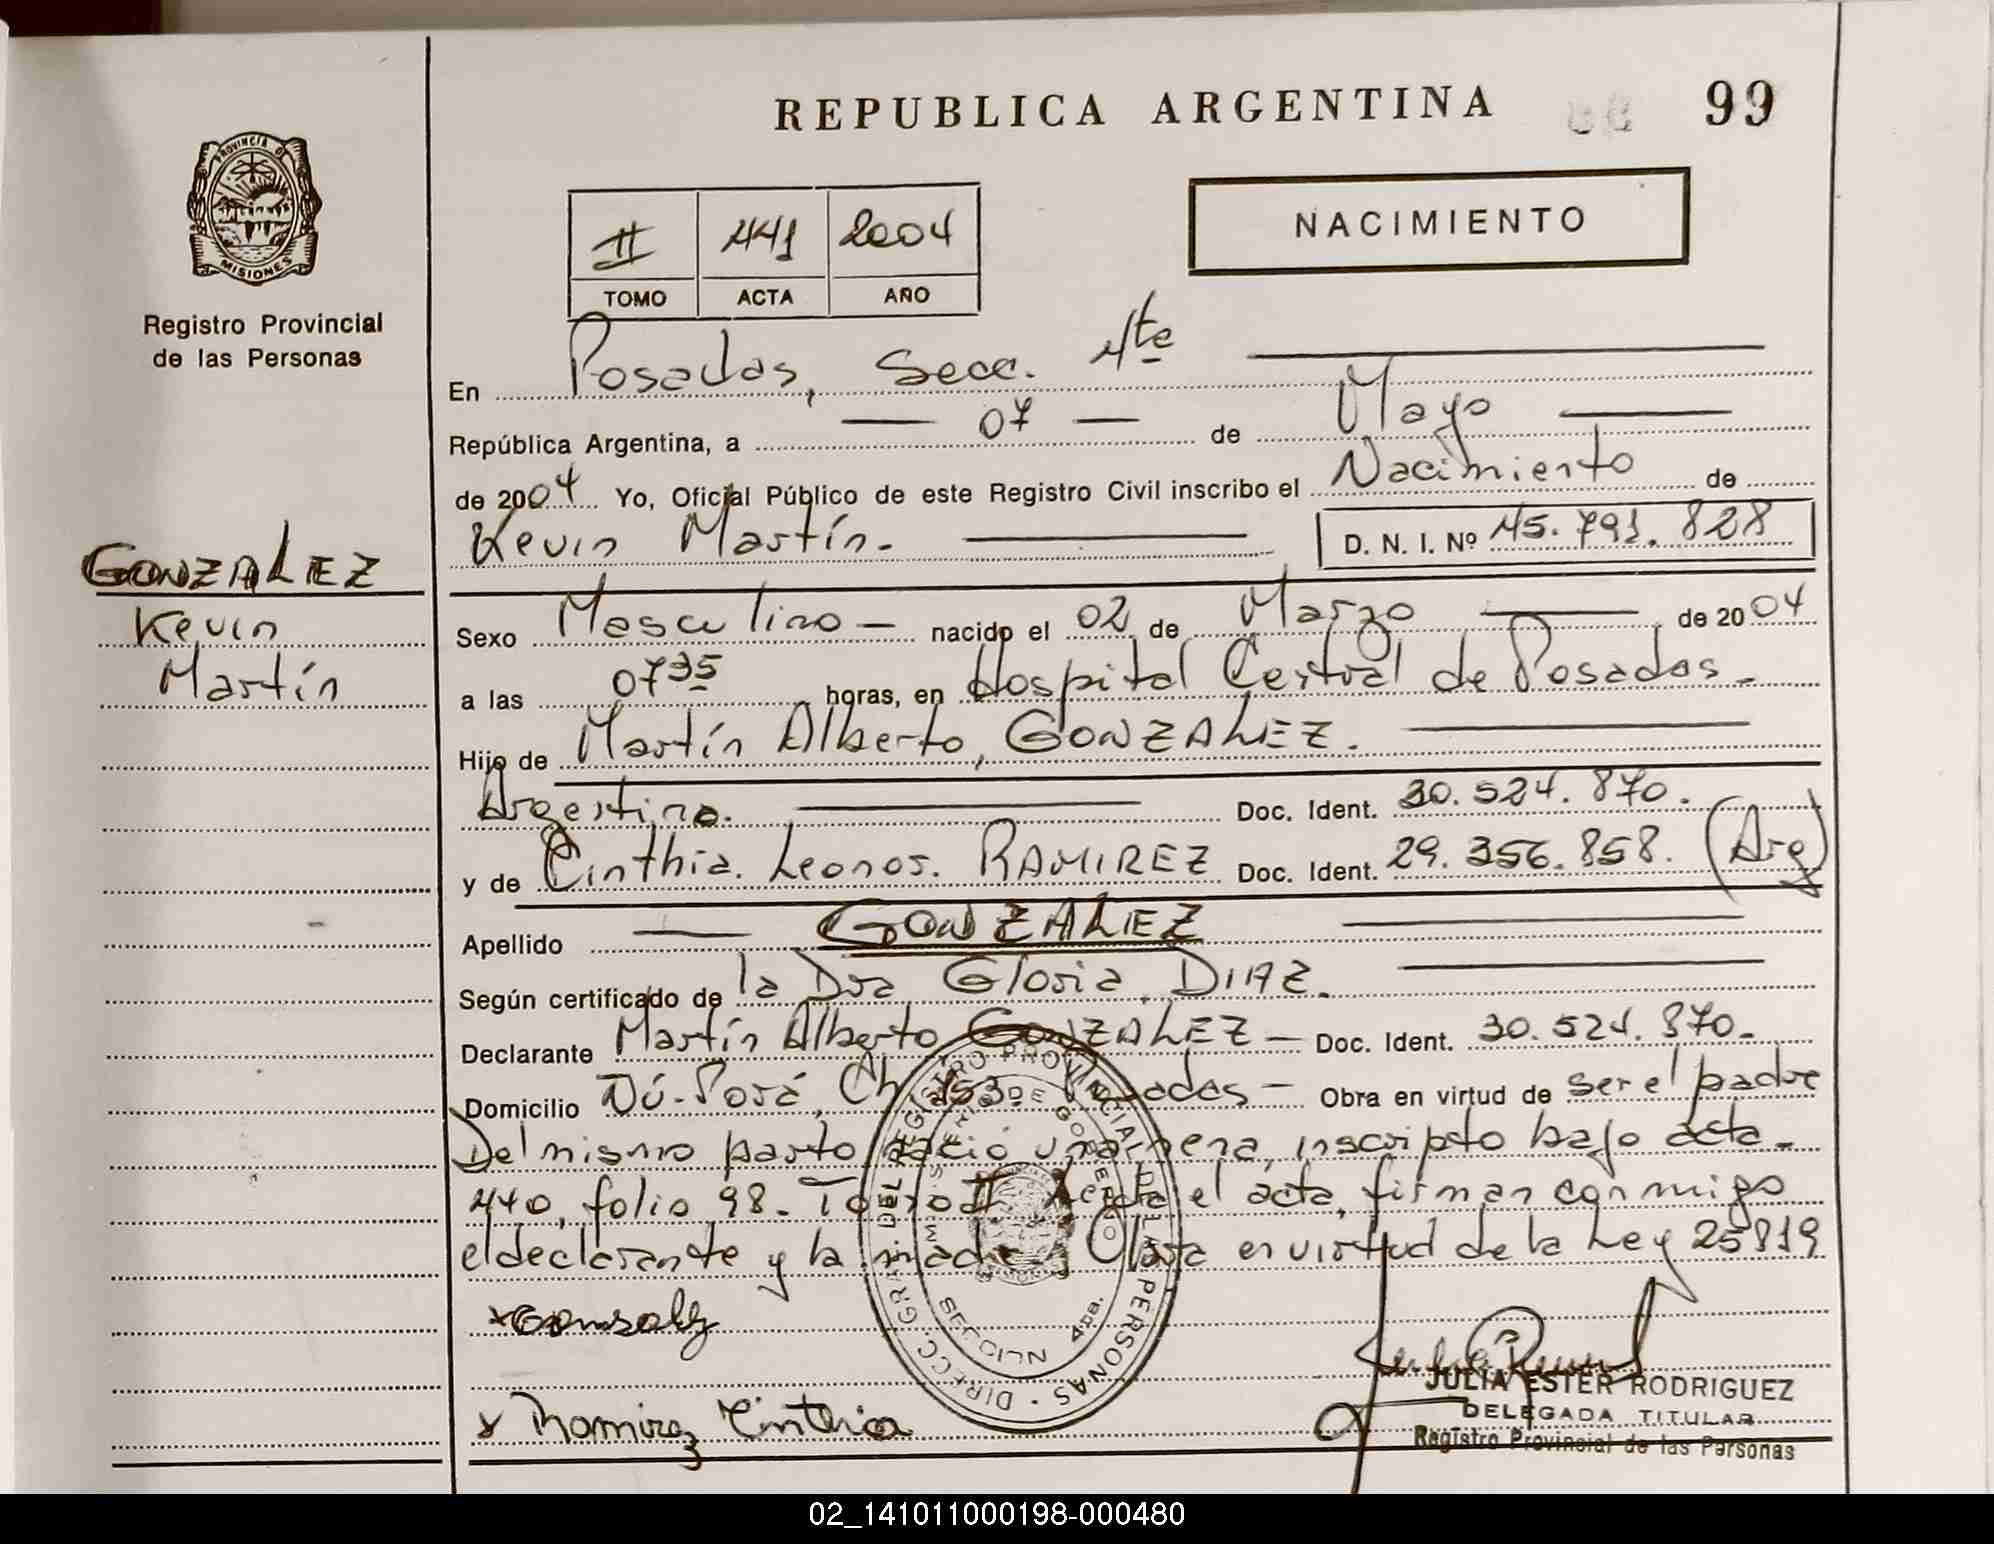 REPUBLICA ARGENTINA 99
PROVINCIA DE
MISIONES
Registro Provincial
de las Personas
II 441 2004
TOMO ACTA AÑO
NACIMIENTO
En Posadas, Secc. 4ta
República Argentina, a 07 de Mayo
de 2004 Yo, Oficial Público de este Registro Civil inscribo el Nacimiento de
Kevin Martín. D. N. I. Nº 45.791.828
GONZALEZ
Kevin
Martín
Sexo Masculino nacido el 02 de Marzo de 2004
a las 0735 horas, en Hospital Central de Posadas.
Hijo de Martín Alberto, GONZALEZ.
Argentino. Doc. Ident. 30.524.870.
y de Cinthia. Leonor. RAMIREZ Doc. Ident. 29.356.858. (Arg)
Apellido GONZALEZ
Según certificado de la Dra Gloria DIAZ.
Declarante Martín Alberto GONZALEZ Doc. Ident. 30.524.870.
Domicilio Bº. José, Ch 153. Posadas Obra en virtud de ser el padre
Del mismo parto nació una nena, inscripto bajo acta
440, folio 98. Tomo II Leída el acta, firman conmigo
el declarante y la madre. Obra en virtud de la Ley 25819
Gonzalez
Ramirez Cinthia
DIRECC. GRAL. DEL REGISTRO PROVINCIAL DE LAS PERSONAS
MINISTERIO DE GOBIERNO
SECCION 4ta.
JULIA ESTER RODRIGUEZ
DELEGADA TITULAR
Registro Provincial de las Personas
02_141011000198-000480